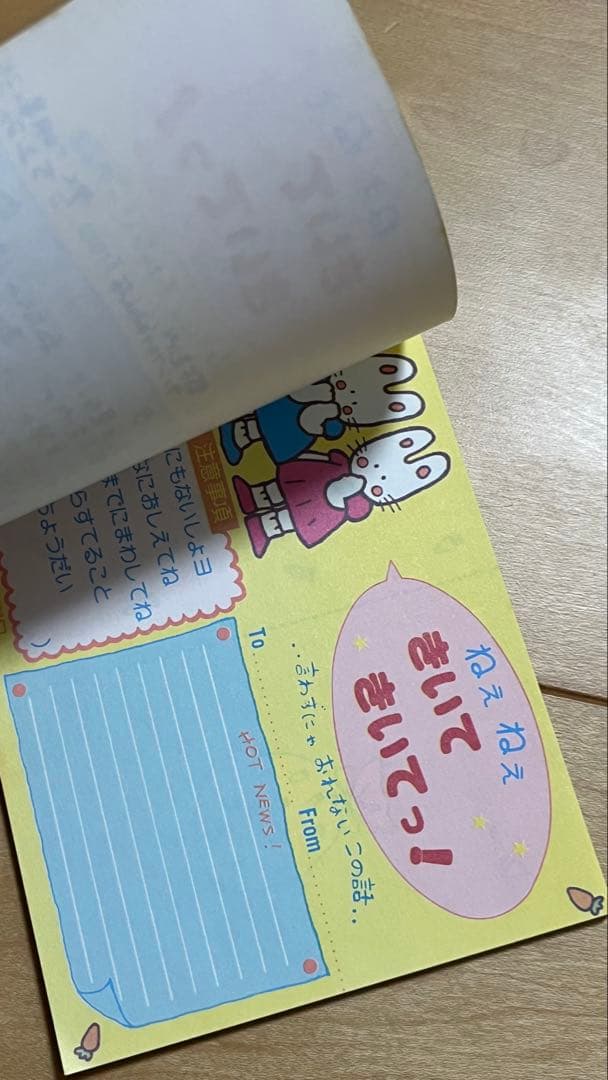 ねぇ ねぇ
きいて
きいてっ!
‥言わずにゃ おれない この話‥
To
From
HOT NEWS!
注意事項
にもないしょヨ
なにおしえてね
までにまわしてね
らすてること
ようだい
)